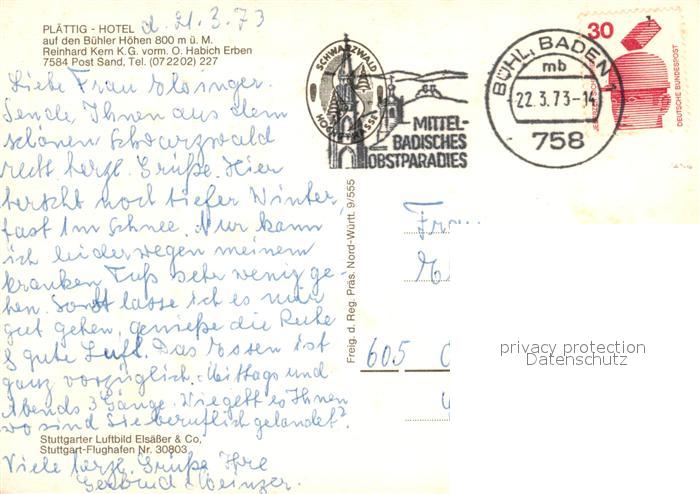 d. 21.3.73
PLÄTTIG - HOTEL
auf den Bühler Höhen 800 m ü. M.
Reinhard Kern K.G. vorm. O. Habich Erben
7584 Post Sand, Tel. (0 72 202) 227
Liebe Frau
Sende Ihnen aus dem
schönen Schwarzwald
recht herzl. Grüße. Hier
herscht noch tiefer Winter,
fast 1 m Schnee. Nur kann
ich leider wegen meinem
kranken Fuß sehr wenig ge-
hen. Sonst lasse ich es mir
gut gehen, genieße die Ruhe
& gute Luft. Das Essen ist
ganz vorzüglich. Mittags und
Abends 3 Gänge. Wie geht es Ihnen
wo sind Sie beruflich gelandet?
Stuttgarter Luftbild Elsäßer & Co,
Stuttgart-Flughafen Nr. 30803
Viele herzl. Grüße Ihre
Gertrud Meinzer.
Freig. d. Reg. Präs. Nord-Württ. 9/555
SCHWARZWALD
HOCHSTRASSE
MITTEL-
BADISCHES
OBSTPARADIES
BÜHL, BADEN 1
mb
22.3.73-14
758
30
DEUTSCHE BUNDESPOST
Frau
605
privacy protection
Datenschutz